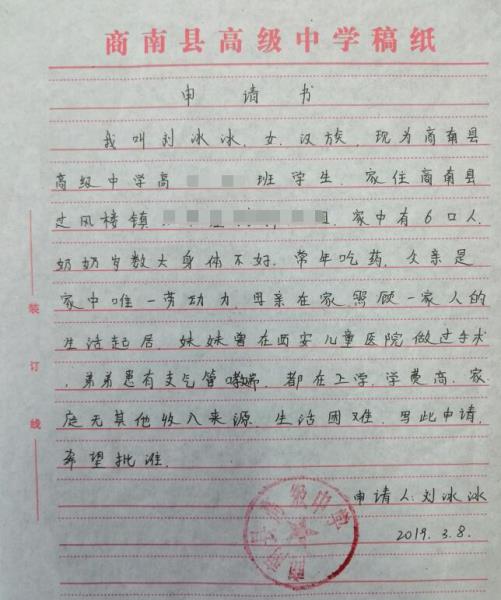 商南县高级中学稿纸
申请书
我叫刘冰冰,女,汉族,现为商南县
高级中学高 班学生,家住商南县
过风楼镇 组,家中有6口人,
奶奶岁数大身体不好,常年吃药,父亲是
家中唯一劳动力,母亲在家照顾一家人的
生活起居,妹妹曾在西安儿童医院做过手术
,弟弟患有支气管哮喘,都在上学,学费高,家
庭无其他收入来源,生活困难,写此申请,
希望批准.
申请人:刘冰冰
2019.3.8.
商南县高级中学
装
订
线